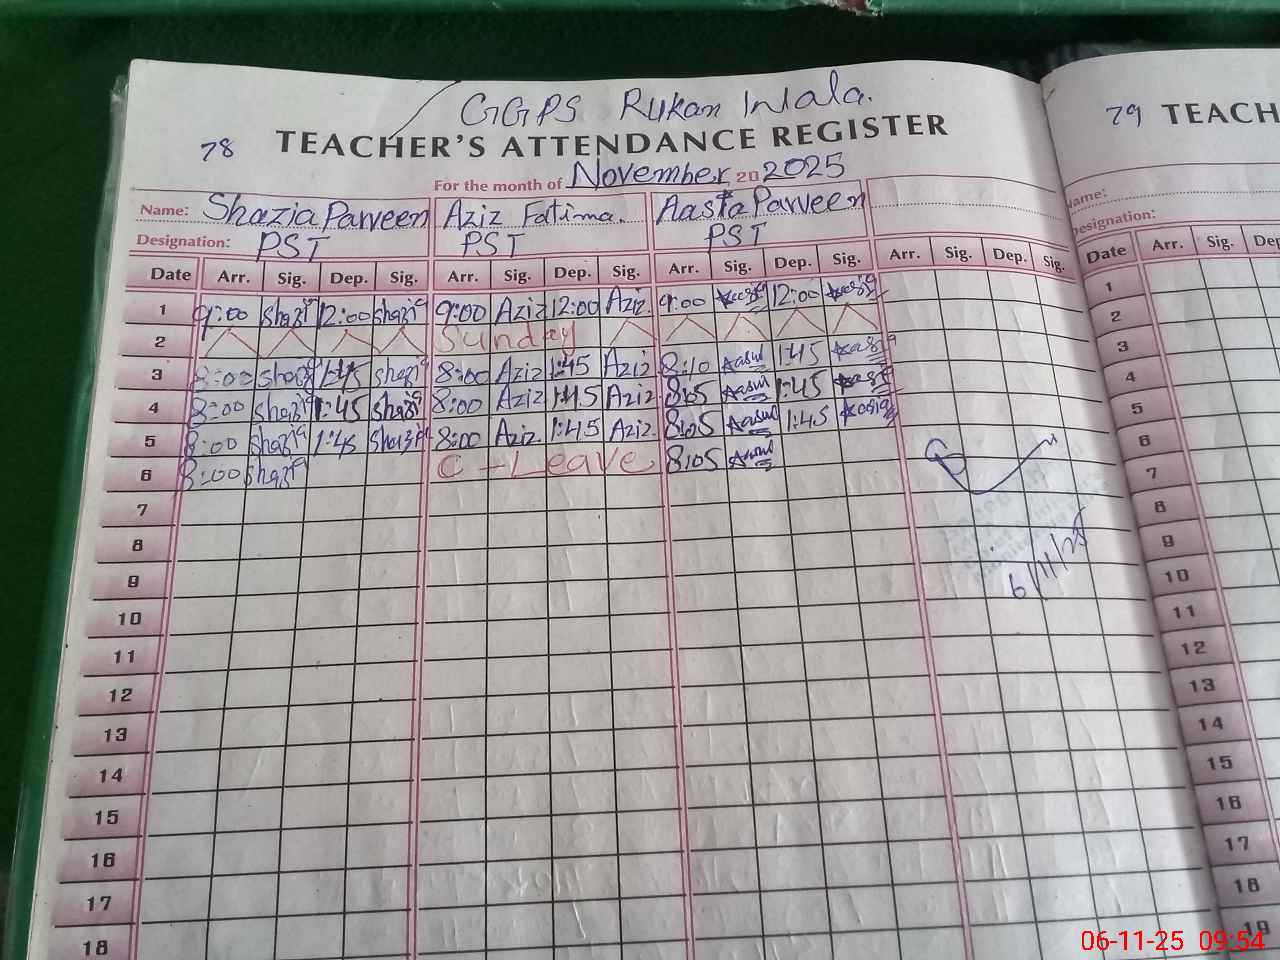 GGPS Rukan Wala.
78 TEACHER'S ATTENDANCE REGISTER
For the month of November 20 2025
Name: Shazia Parveen Aziz Fatima. Aasia Parveen
Designation: PST PST PST
Date Arr. Sig. Dep. Sig. Arr. Sig. Dep. Sig. Arr. Sig. Dep. Sig. Arr. Sig. Dep. Sig.
1 9:00 Shazia 12:00 Shazia 9:00 Aziz 12:00 Aziz. 9:00 Aasia 12:00 Aasia
2 Sunday
3 8:00 Shazia 1:45 Shazia 8:00 Aziz 1:45 Aziz 8:10 1:45
4 8:00 Shazia 1:45 Shazia 8:00 Aziz 1:45 Aziz 8:05 1:45
5 8:00 Shazia 1:45 Shazia 8:00 Aziz. 1:45 Aziz. 8:05 1:45 Aasia
6 8:00 Shazia C - Leave 8:05
6/11/25
7
8
9
10
11
12
13
14
15
16
17
18
79 TEACH
Name:
Designation:
Date Arr. Sig. Dep
1
2
3
4
5
6
7
8
9
10
11
12
13
14
15
16
17
18
19
06-11-25 09:54